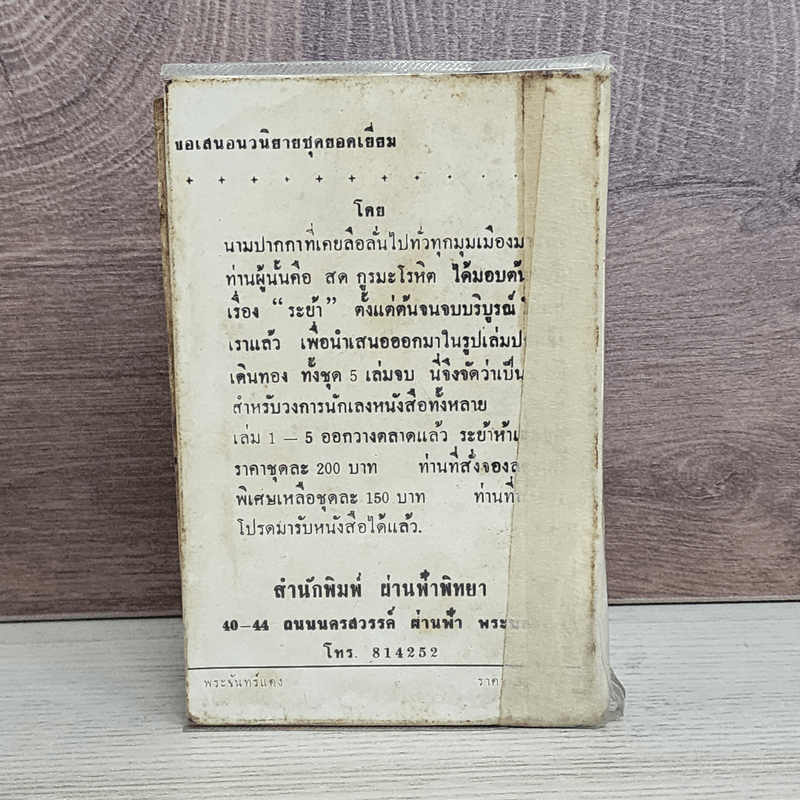 ขอเสนอนวนิยายชุดยอดเยี่ยม
โดย
นามปากกาที่เคยลือลั่นไปทั่วทุกมุมเมืองมา
ท่านผู้นั้นคือ สด กูรมะโรหิต ได้มอบต้น
เรื่อง “ระย้า” ตั้งแต่ต้นจนจบบริบูรณ์
เราแล้ว เพื่อนำเสนอออกมาในรูปเล่มป
เดินทอง ทั้งชุด 5 เล่มจบ นี่จึงจัดว่าเป็น
สำหรับวงการนักเลงหนังสือทั้งหลาย
เล่ม 1 – 5 ออกวางตลาดแล้ว ระย้าห้า
ราคาชุดละ 200 บาท ท่านที่สั่งจอง
พิเศษเหลือชุดละ 150 บาท ท่านที่
โปรดมารับหนังสือได้แล้ว.
สำนักพิมพ์ ผ่านฟ้าพิทยา
40–44 ถนนนครสวรรค์ ผ่านฟ้า
โทร. 814252
พระจันทร์แดง